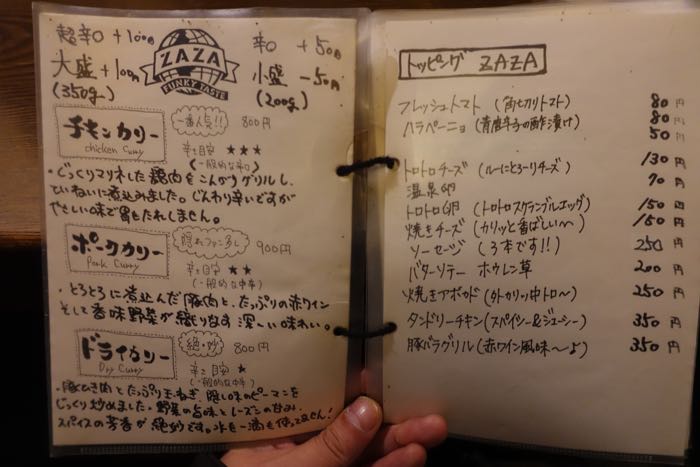 超辛口 +100円
大盛 +100円
(350g)
ZAZA
FUNKY TASTE
辛口 +50円
小盛 -50円
(200g)
チキンカリー
chicken Curry
一番人気!! 800円
辛さ目安 ★★★
(一般的な辛口)
・じっくりマリネした鶏肉をこんがりグリルし、
ていねいに煮込みました。じんわり辛いですが
やさしい味で胃もたれしません。
ポークカリー
Pork Curry
隠れファン多し 900円
辛さ目安 ★★
(一般的な中辛)
・とろとろに煮込んだ豚肉と、たっぷりの赤ワイン
そして香味野菜が織りなす深〜い味わい。
ドライカリー
Dry Curry
絶・妙 800円
辛さ目安 ★
(一般的な中辛)
・豚ひき肉とたっぷり玉ねぎ、隠し味のピーマンを
じっくり炒めました。野菜の旨味とレーズンの甘み、
スパイスの芳香が絶妙です。水を一滴も使ってません!
トッピング ZAZA
フレッシュトマト (角切りトマト) 80円
ハラペーニョ (青唐辛子の酢漬け) 80円
50円
トロトロチーズ (ルーにとろーりチーズ) 130円
温泉卵 70円
トロトロ卵 (トロトロスクランブルエッグ) 150円
焼きチーズ (カリッと香ばしい〜) 150円
ソーセージ (3本です!!) 250円
バターソテー ホウレン草 200円
焼きアボカド (外カリッ中トロ〜) 250円
タンドリーチキン (スパイシー&ジューシー) 350円
豚バラグリル (赤ワイン風味〜よ) 350円